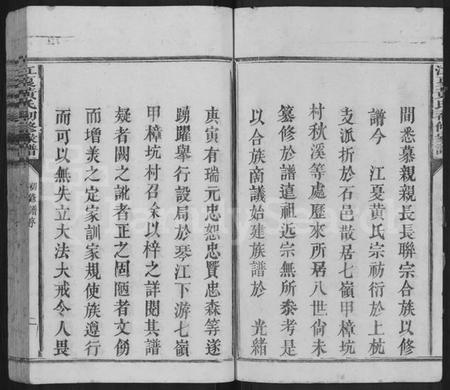 間悉慕親親長長聯宗合族以修
譜今 江夏黄氏宗祊衍於上杭
支派折於石邑散居七嶺甲樟坑
村秋溪等處歷來所居八世尙未
篡修於譜遠祖近宗無所叅考是
以合族南議始建族譜於 光緒
庚寅有瑞元忠恕忠賢忠森等遂
踴躍舉行設局於琴江下游七嶺
甲樟坑村召余以梓之詳閱其譜
疑者闕之訛者正之固陋者文僃
而增美之定家訓家規使族遵行
而可以無失立大法大戒令人畏
江夏黄氏初修宗譜
初修譜序